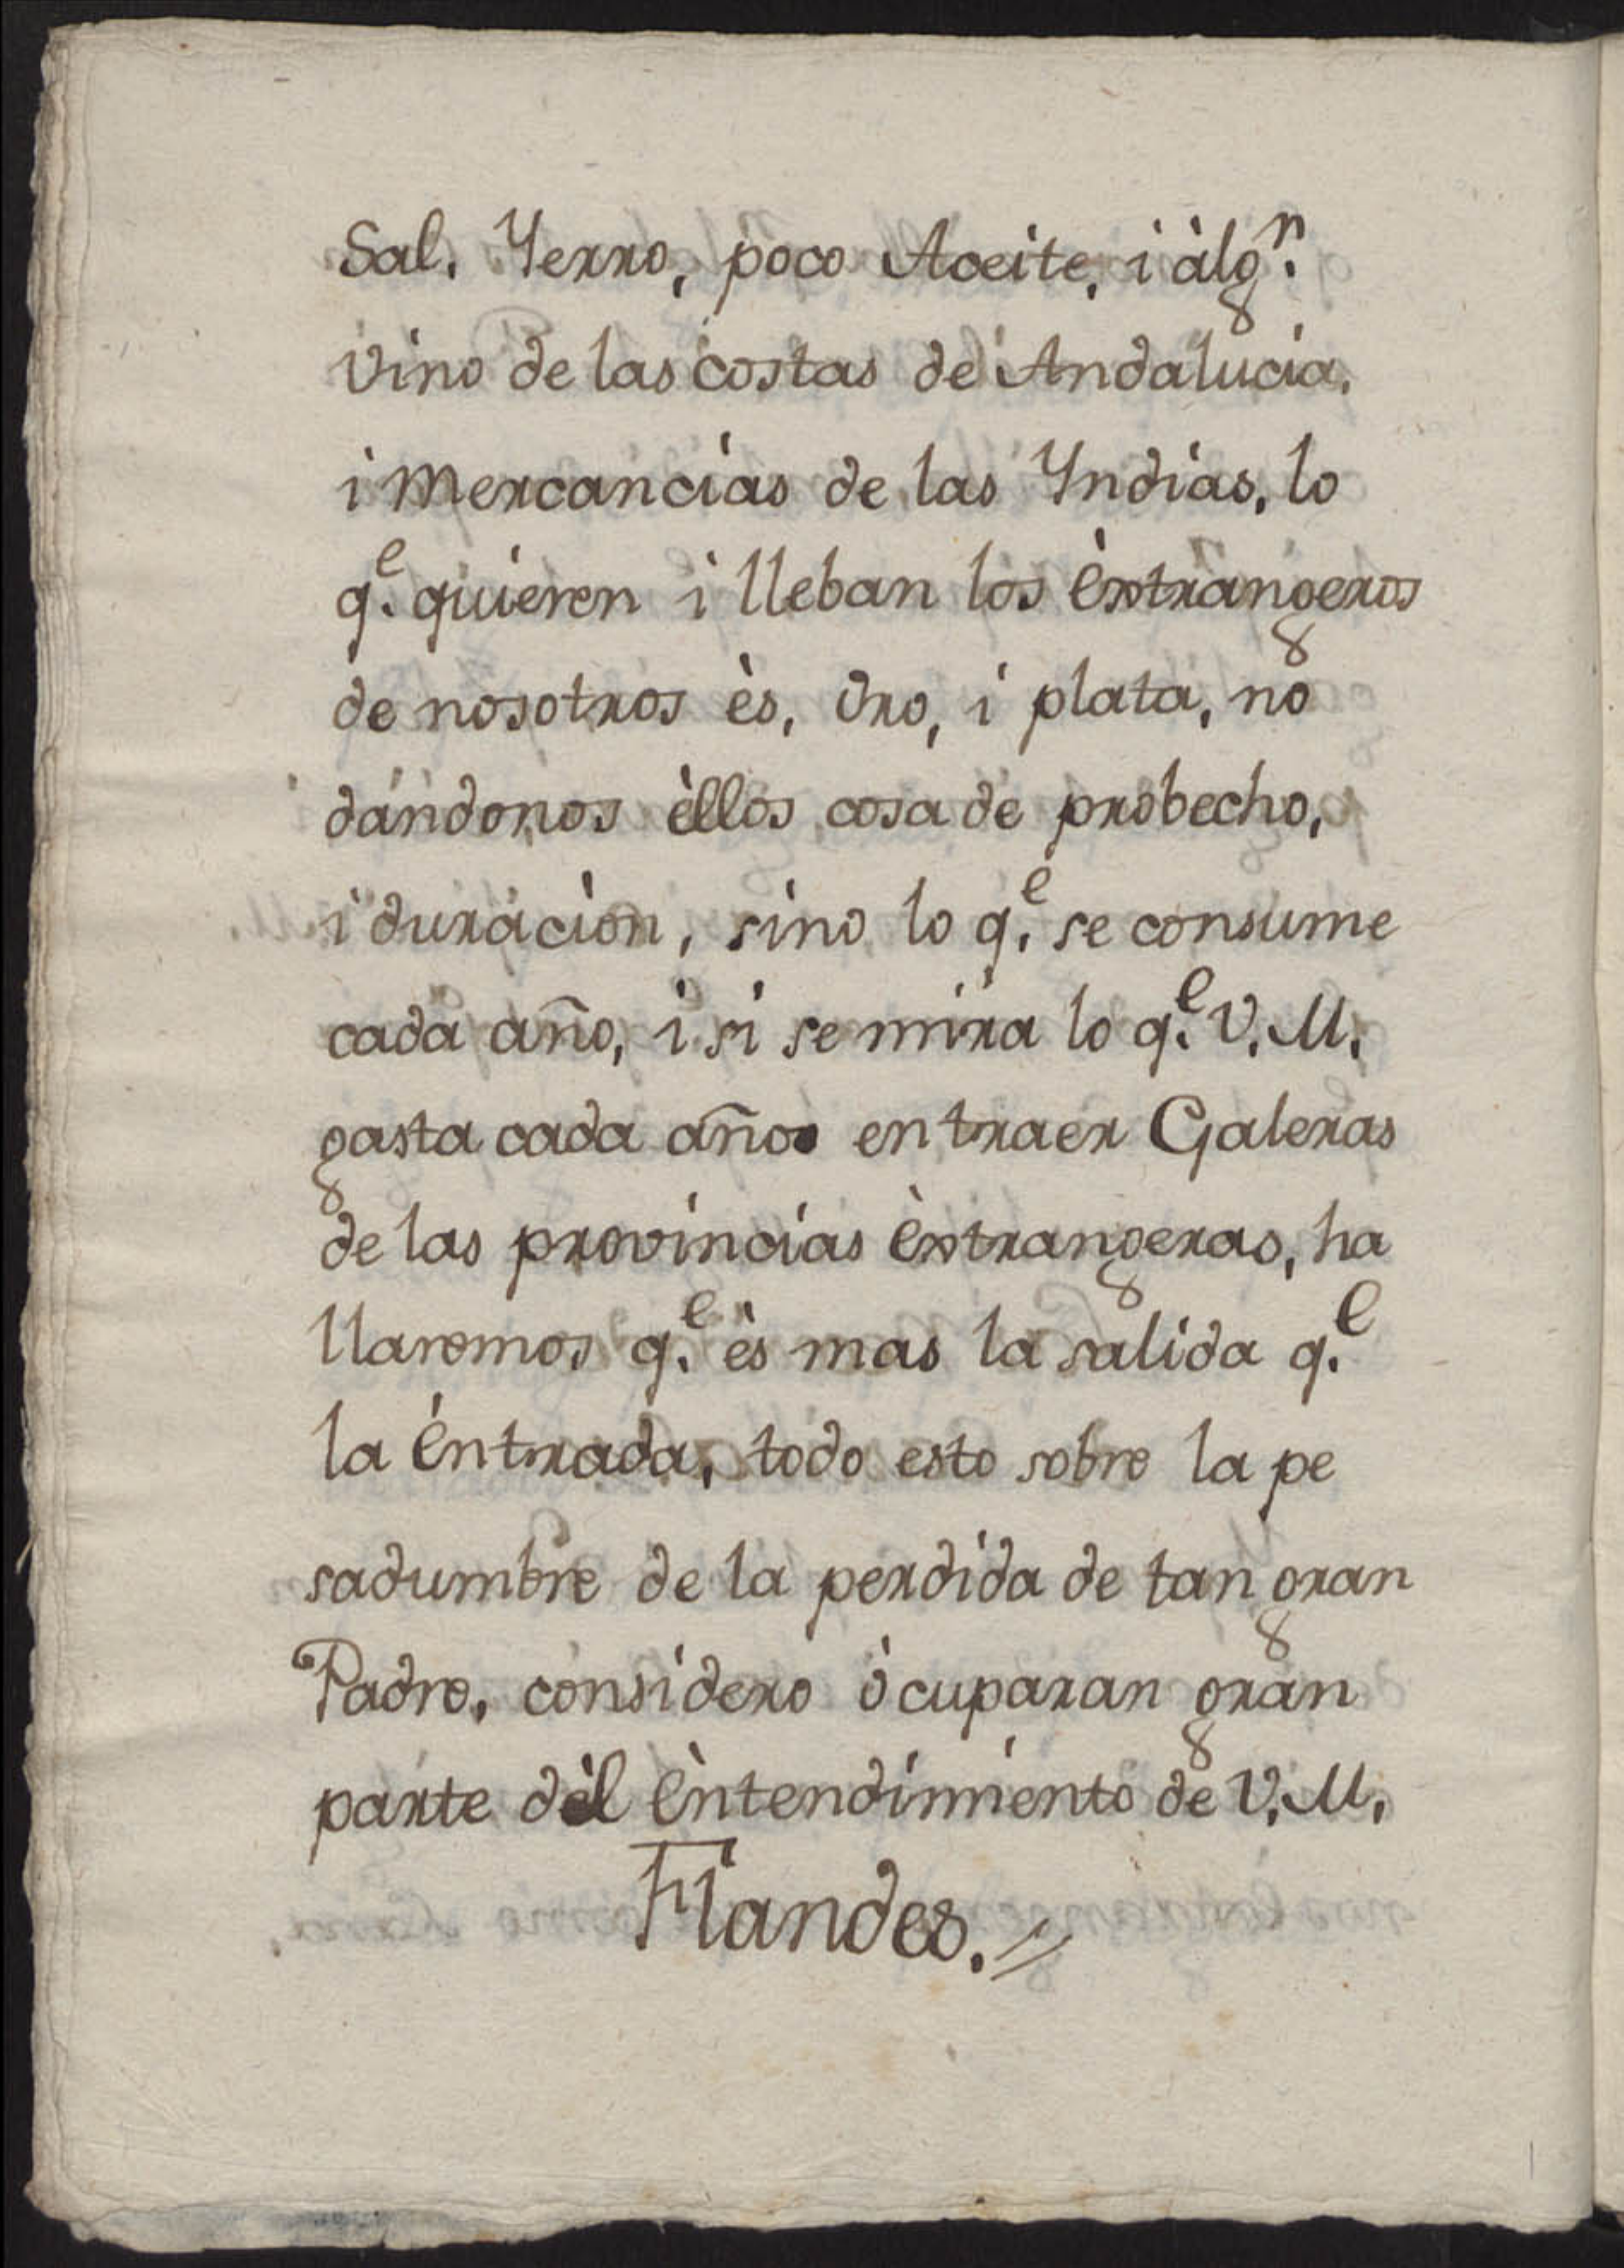 Sal. Yerro, poco Aceite, i àlgⁿ.
vino de las costas de Andalucia,
i Mercancias de las Yndias, lo
qᵉ. quieren i lleban los èxtrangeros
de nosotros ès, Oro, i plata, no
dándonos èllos cosa de probecho,
i duraciòn, sino lo qᵉ. se consume
cada año, i si se mira lo qᵉ. V. M.
gasta cada año en traer Galeras
de las provincias èxtrangeras, ha
llaremos qᵉ. ès mas la salida qᵉ.
la éntrada, todo esto sobre la pe
sadumbre de la perdida de tan gran
Padre, considero òcuparan gran
parte dèl èntendimiento de V. M.
Flandes.//